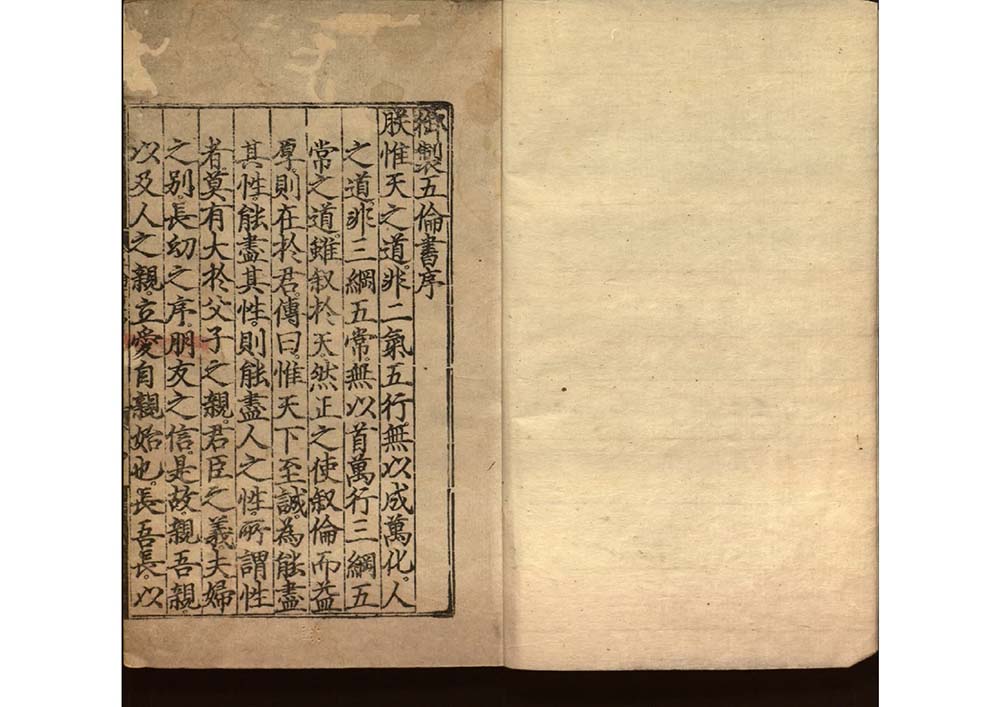 御製五倫書序
朕惟天之道。非二氣五行無以成萬化。人
之道。非三綱五常。無以首萬行三綱五
常之道。雖叙於天。然正之使叙倫而益
厚。則在於君。傳曰。惟天下至誠。為能盡
其性。能盡其性。則能盡人之性。所謂性
者。莫有大於父子之親。君臣之義。夫婦
之別。長幼之序。朋友之信。是故。親吾親。
以及人之親。立愛自親始也。長吾長。以